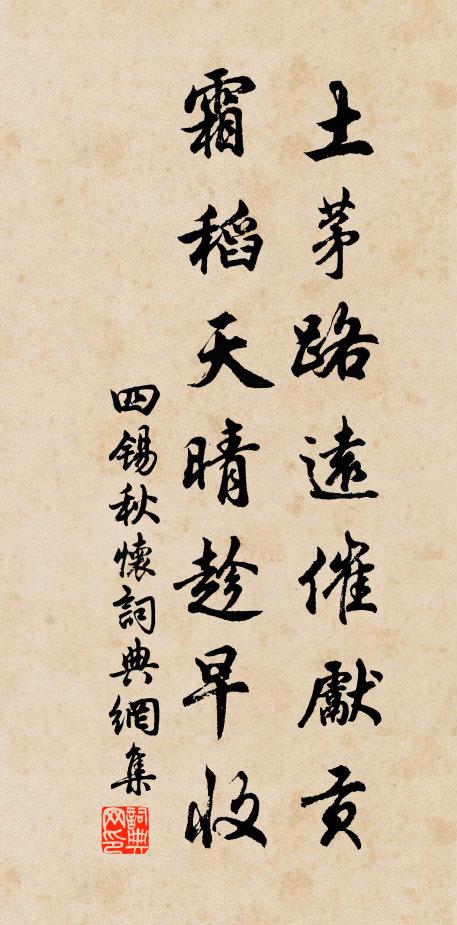 土茅路遠催獻貢
霜稻天晴趁早收
四錫秋懷詞典網集
詞典网印